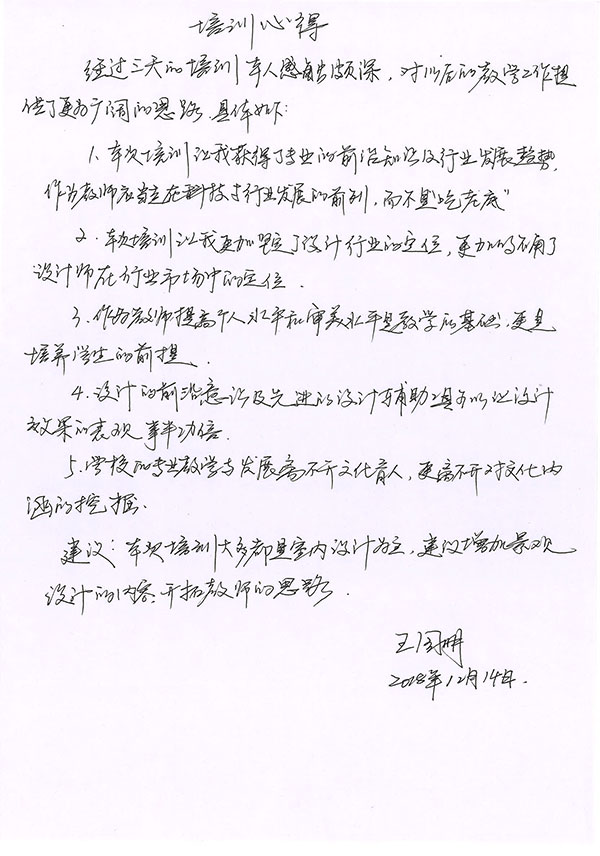 培训心得
经过三天的培训本人感触颇深，对以后的教学工作提
供了更为广阔的思路，具体如下：
1、本次培训让我获得了专业的前沿知识及行业发展趋势，
作为教师应当立在科技与行业发展的前列，而不是"吃老底"
2、本次培训让我更加坚定了设计行业的定位，更加明确了
设计师在行业市场中的定位．
3、作为教师提高个人水平和审美水平是教学的基础，更是
培养学生的前提．
4、设计的前沿意识及先进的设计辅助工具可以让设计
效果的表现事半功倍．
5、学校的专业教学与发展离不开文化育人，更离不开对文化内
涵的挖掘．
建议：本次培训大多都是室内设计为主，建议增加景观
设计的内容，开拓教师的思路．
王国明
2018年12月14日．